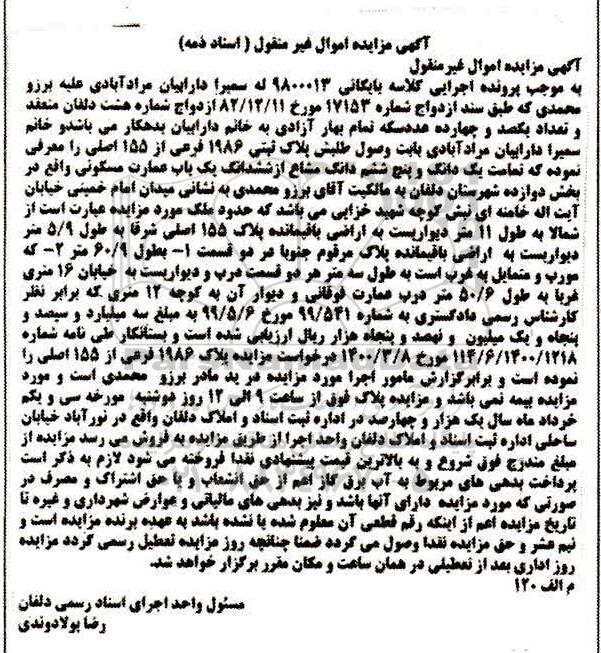 آگهی مزایده اموال غیر منقول ( اسناد ذمه)
آگهی مزایده اموال غیرمنقول
به موجب پرونده اجرایی کلاسه بایگانی ۹۸۰۰۰۱۳ له سمیرا دارابیان مرادآبادی علیه برزو
محمدی که طبق سند ازدواج شماره ۱۷۱۵۳ مورخ ۸۲/۱۲/۱۱ ازدواج شماره هشت دلفان منعقد
و تعداد یکصد و چهارده عددسکه تمام بهار آزادی به خانم دارابیان بدهکار می باشدو خانم
سمیرا دارابیان مرادآبادی بابت وصول طلبش پلاک ثبتی ۱۹۸۶ فرعی از ۱۵۵ اصلی را معرفی
نموده که تمامت یک دانگ و پنج ششم دانگ مشاع ازششدانگ یک باب عمارت مسکونی واقع در
بخش دوازده شهرستان دلفان به مالکیت آقای برزو محمدی به نشانی میدان امام خمینی خیابان
آیت اله خامنه ای نبش کوچه شهید خزایی می باشد که حدود ملک مورد مزایده عبارت است از
شمالا به طول ۱۱ متر دیواریست به اراضی باقیمانده پلاک ۱۵۵ اصلی شرقا به طول ۵/۹ متر
دیواریست به اراضی باقیمانده پلاک مرقوم جنوبا در دو قسمت ۱- بطول ۶۰/۹ متر ۲- که
مورب و متمایل به غرب است به طول سه متر هر دو قسمت درب و دیواریست به خیابان ۱۶ متری
غربا به طول ۵۰/۶ متر درب عمارت فوقانی و دیوار آن به کوچه ۱۲ متری که برابر نظر
کارشناس رسمی دادگستری به شماره ۹۹/۵۴۱ مورخ ۹۹/۵/۶ به مبلغ سه میلیارد و سیصد و
پنجاه و یک میلیون و نهصد و پنجاه هزار ریال ارزیابی شده است و بستانکار طی نامه شماره
۱۱۴/۶/۱۴۰۰/۱۲۱۸ مورخ ۱۴۰۰/۳/۸ درخواست مزایده پلاک ۱۹۸۶ فرعی از ۱۵۵ اصلی را
نموده است و برابرگزارش مامور اجرا مورد مزایده در ید مادر برزو محمدی است و مورد
مزایده بیمه نمی باشد و مزایده پلاک فوق از ساعت ۹ الی ۱۲ روز دوشنبه مورخه سی و یکم
خرداد ماه سال یک هزار و چهارصد در اداره ثبت اسناد و املاک دلفان واقع در نورآباد خیابان
ساحلی اداره ثبت اسناد و املاک دلفان واحد اجرا از طریق مزایده به فروش می رسد مزایده از
مبلغ مندرج فوق شروع و به بالاترین قیمت پیشنهادی نقدا فروخته می شود لازم به ذکر است
پرداخت بدهی های مربوط به آب برق گاز اعم از حق انشعاب و یا حق اشتراک و مصرف در
صورتی که مورد مزایده دارای آنها باشد و نیز بدهی های مالیاتی و عوارض شهرداری و غیره تا
تاریخ مزایده اعم از اینکه رقم قطعی آن معلوم شده یا نشده باشد به عهده برنده مزایده است و
نیم عشر و حق مزایده نقدا وصول می گردد ضمنا چنانچه روز مزایده تعطیل رسمی گردد مزایده
روز اداری بعد از تعطیلی در همان ساعت و مکان مقرر برگزار خواهد شد.
م الف ۱۲۰
مسئول واحد اجرای اسناد رسمی دلفان
رضا پولادوندی